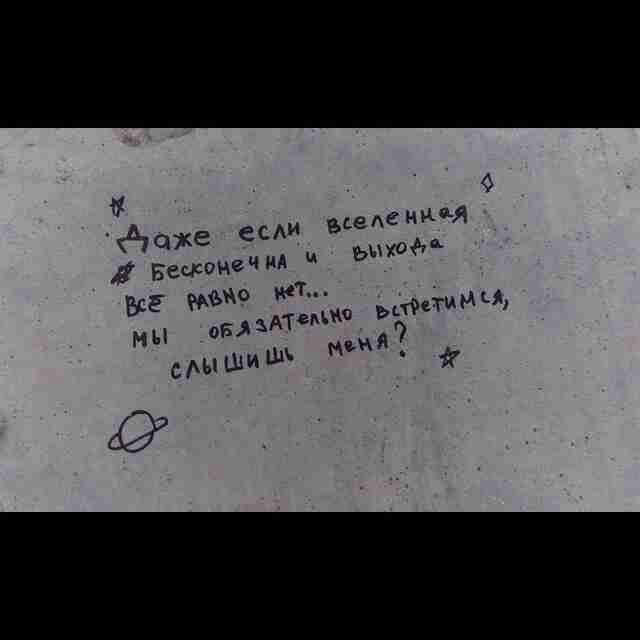 Даже если вселенная
бесконечна и выхода
всё равно нет...
мы обязательно встретимся,
слышишь меня?